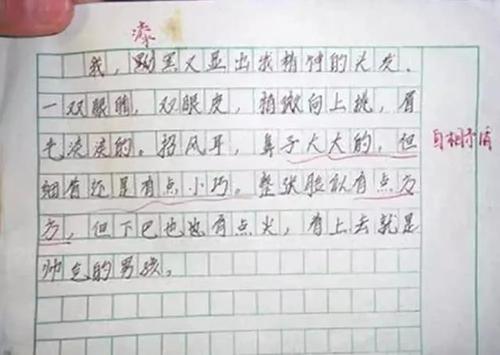 漆
我，黝黑又显出我精神的头发、
一双眼睛，双眼皮，稍微向上挑，眉
毛淡淡的。招风耳，鼻子大大的，但
细看还是有点小巧。整张脸似有点方
方，但下巴也也有点尖，看上去就是
帅气的男孩。
自相矛盾